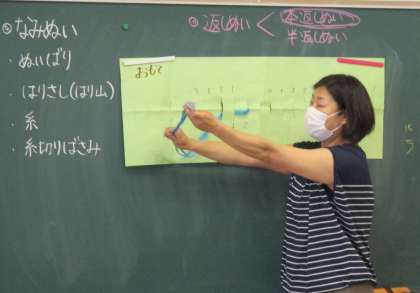 ◎なみぬい
・ぬいばり
・はりさし(はり山)
・糸
・糸切りばさみ
◎返しぬい
本返しぬい
半返しぬい
おもて